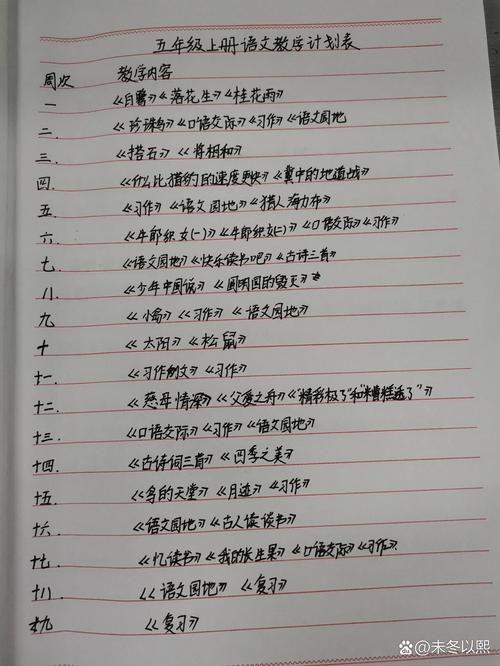 五年级上册语文教学计划表
周次 教学内容
一 《白鹭》《落花生》《桂花雨》
二. 《珍珠鸟》《口语交际》《习作》《语文园地
三. 《搭石》《将相和》
四. 《什么比猎豹的速度更快》《冀中的地道战》
五. 《习作》《语文园地》《猎人海力布》
六. 《牛郎织女(一)》《牛郎织女(二)》《口语交际》《习作》
七. 《语文园地》《快乐读书吧》《古诗三首》
八. 《少年中国说》《圆明园的毁灭》
九 《小岛》《习作》《语文园地》
十 《太阳》《松鼠》
十一. 《习作例文》《习作》
十二. 《慈母情深》《父爱之舟》《"精彩极了"和"糟糕透了"》
十三. 《口语交际》《习作》《语文园地》
十四. 《古诗词三首》《四季之美》
十五. 《鸟的天堂》《月迹》《习作》
十六. 《语文园地》《古人谈读书》
十七. 《忆读书》《我的长生果》《口语交际》《习作》.
十八. 《语文园地》《复习》
十九 《复习》
@未冬以熙